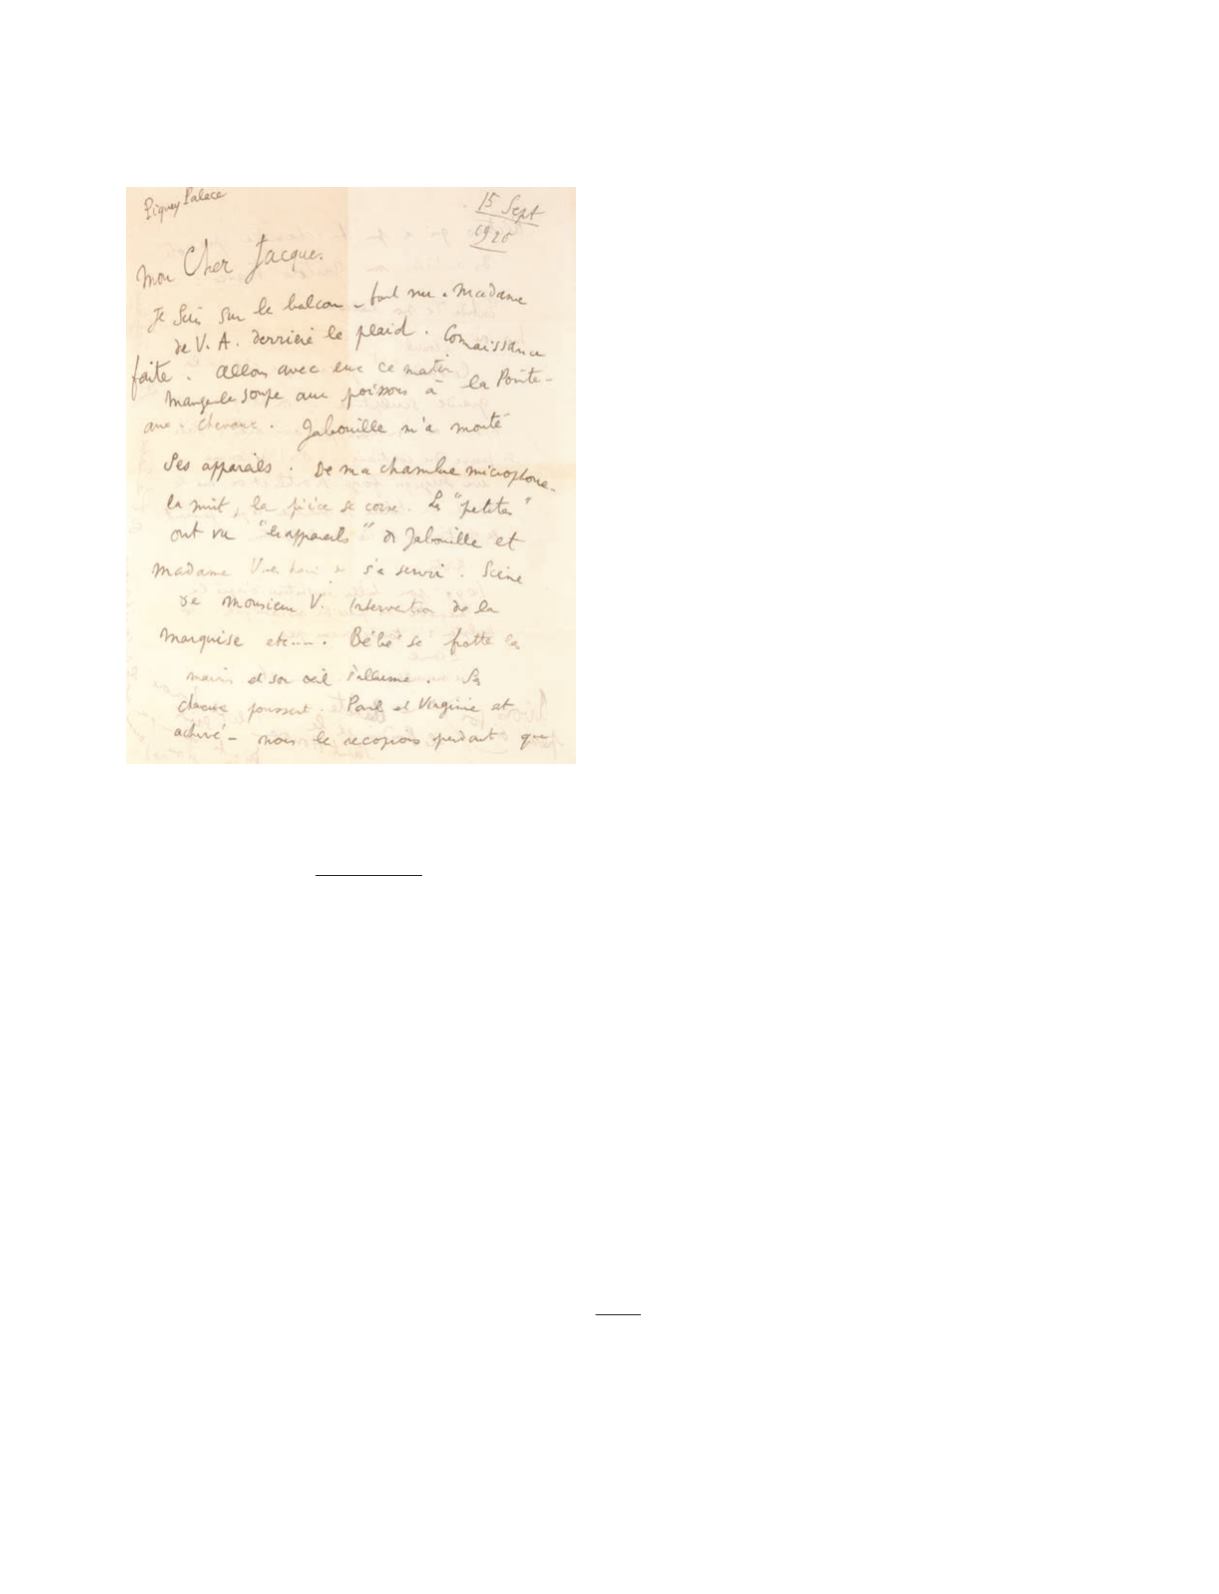 Piquey Palace
15 Sept
1920
Mon Cher Jacques.
Je suis sur le balcon - tout nu - Madame
de V. A. derrière le plaid. Connaissance
faite. Allons avec eux ce matin
manger le soupe aux poissons à la Pointe-
aux-chevaux. Jabouille m'a monté
ses appareils. De ma chambre microphone -
la nuit, la pièce se corse. Les "petites"
ont vu "les appareils" de Jabouille et
Madame s'en servir. Scène
de Monsieur V. Intervention de la
Marquise etc..... Bébé se frotte les
mains et son œil s'allume. Ses
cheveux poussent. Paul et Virginie est
achevé - nous le recopions pendant que